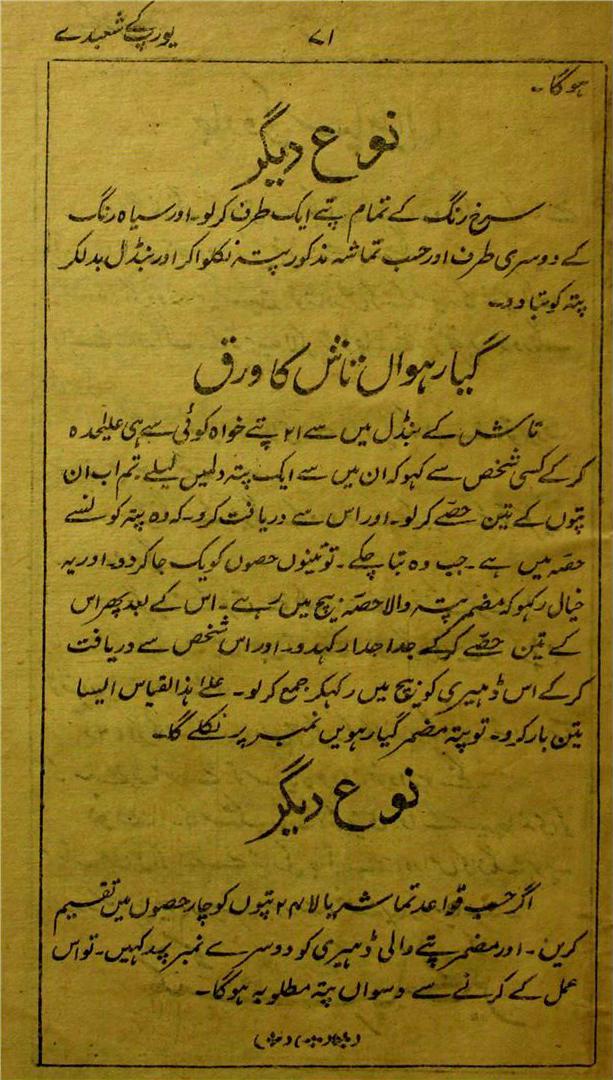 یورپ کے شعبدے ۷۱
ہوگا۔
نوع دیگر
سرخ رنگ کے تمام پتے ایک طرف کرلو۔ اور سیاہ رنگ
کے دوسری طرف اور حسب تماشہ مذکور پتہ نکلوا کر اور بنڈل بدلکر
پتہ کو بتا دو۔
گیارہواں تاش کا ورق
تاش کے بنڈل میں سے ۲۱ پتے خواہ کوئی سے ہی علیٰحدہ
کرکے کسی شخص سے کہو کہ ان میں سے ایک پتہ دلمیں لیلے۔ تم اب ان
پتوں کے تین حصّے کرلو۔ اور اس سے دریافت کرو۔ کہ وہ پتہ کونسے
حصّہ میں ہے۔ جب وہ بتا چکے۔ تو تینوں حصوں کو یک جا کر دو۔ اور یہ
خیال رکہو کہ مضمر پتہ والا حصّہ بیچ میں رہے۔ اس کے بعد پھر اس
کے تین حصّے کرکے جدا جدا رکہدو۔ اور اس شخص سے دریافت
کرکے اس ڈہیری کو بیچ میں رکہکر جمع کرلو۔ علےٰ ہذا القیاس ایسا
تین بار کرو۔ تو پتہ مضمر گیارہویں نمبر پر نکلے گا۔
نوع دیگر
اگر حسب قواعد تماشہ بالا ۲۴ پتوں کو چار حصوں میں تقسیم
کریں۔ اور مضمر پتے والی ڈہیری کو دوسرے نمبر پر رکہیں۔ تو اس
عمل کے کرنے سے دسواں پتہ مطلوبہ ہوگا۔